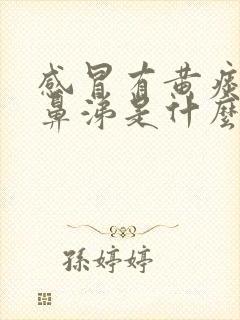 感冒有黄痰
鼻涕是什麽
孫婷婷